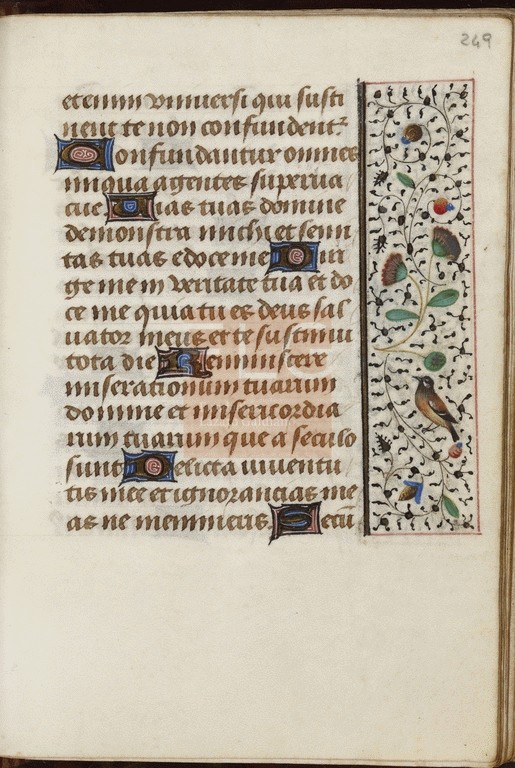 249
etenim vniuersi qui susti
nent te non confundent̉
Confundantur omnes
iniqua agentes superua
cue Uias tuas domine
demonstra michi et semi
tas tuas edoce me Diri
ge me in veritate tua et do
ce me quia tu es deus sal
uator meus et te sustinui
tota die Reminiscere
miserationum tuarum
domine et misericordia
rum tuarum que a seculo
sunt Delicta iuuentu
tis mee et ignorancias me
as ne memineris Secū
Lázaro Galdiano